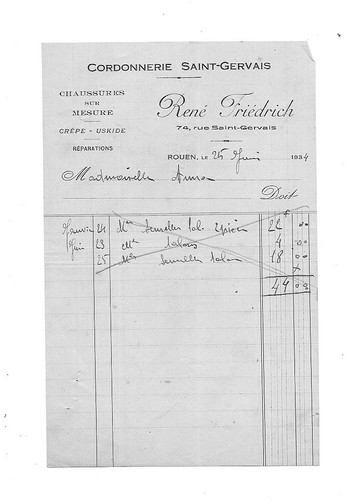 CORDONNERIE SAINT-GERVAIS
CHAUSSURES
SUR
MESURE
CRÊPE - USKIDE
RÉPARATIONS
René Friédrich
74, rue Saint-Gervais
ROUEN, LE 25 Juin 1934
Mademoiselle
Doit
Janvier 24 semelles tal. 22 00
Juin 23 talons 4 00
25 semelles talon 18 00
44 00